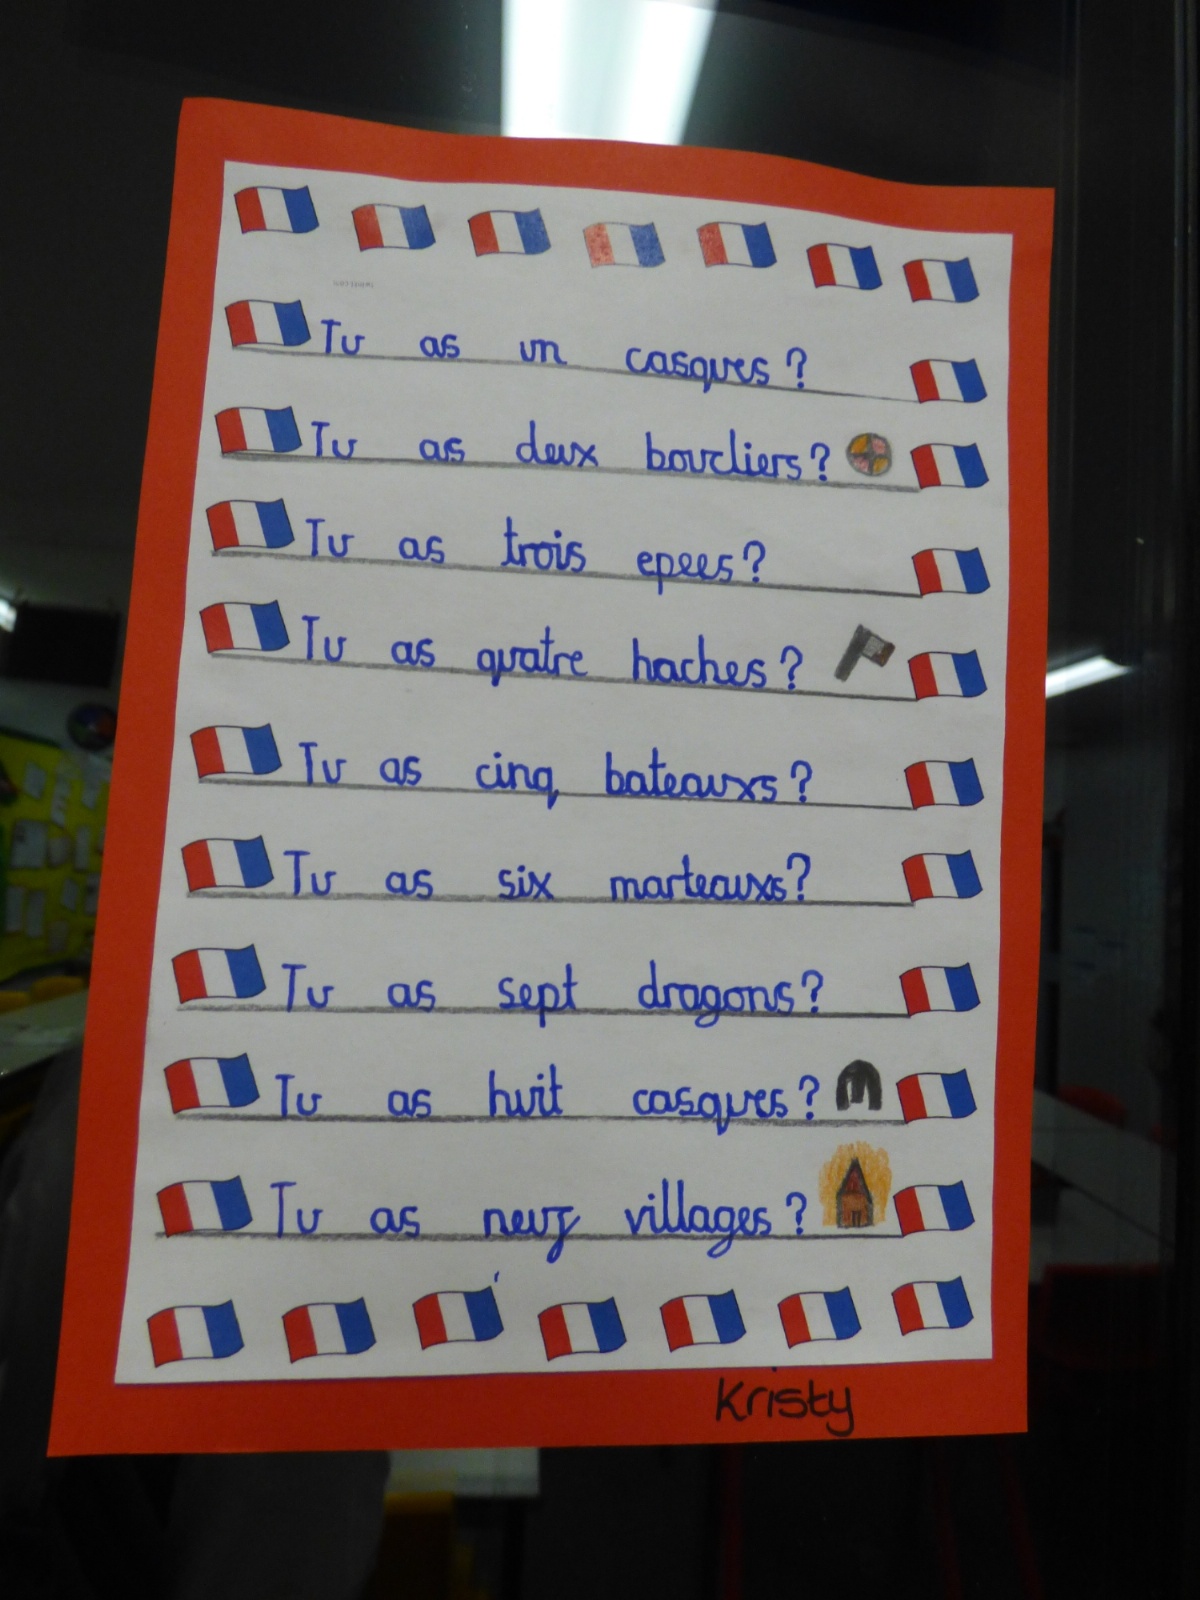 Tu as un casques?
Tu as deux boucliers?
Tu as trois epees?
Tu as quatre haches?
Tu as cinq bateauxs?
Tu as six marteauxs?
Tu as sept dragons?
Tu as huit casques?
Tu as neuf villages?
Kristy